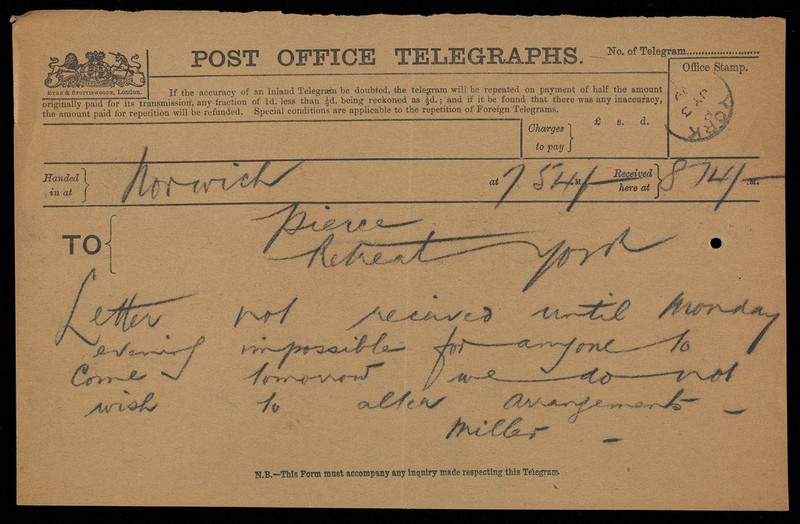 POST OFFICE TELEGRAPHS.
No. of Telegram
Office Stamp.
EYRE & SPOTTISWOODE, London.
If the accuracy of an Inland Telegram be doubted, the telegram will be repeated on payment of half the amount
originally paid for its transmission, any fraction of 1d. less than ½d. being reckoned as ½d.; and if it be found that there was any inaccuracy,
the amount paid for repetition will be refunded. Special conditions are applicable to the repetition of Foreign Telegrams.
YORK
Charges to pay } £ s. d.
Handed in at } Norwich at 7 54/- M Received here at } 8 14/- M.
TO { Pierce
Retreat York
Letter not received until Monday
evening impossible for anyone to
come tomorrow we do not
wish to alter arrangements -
Miller -
N.B.—This Form must accompany any inquiry made respecting this Telegram.